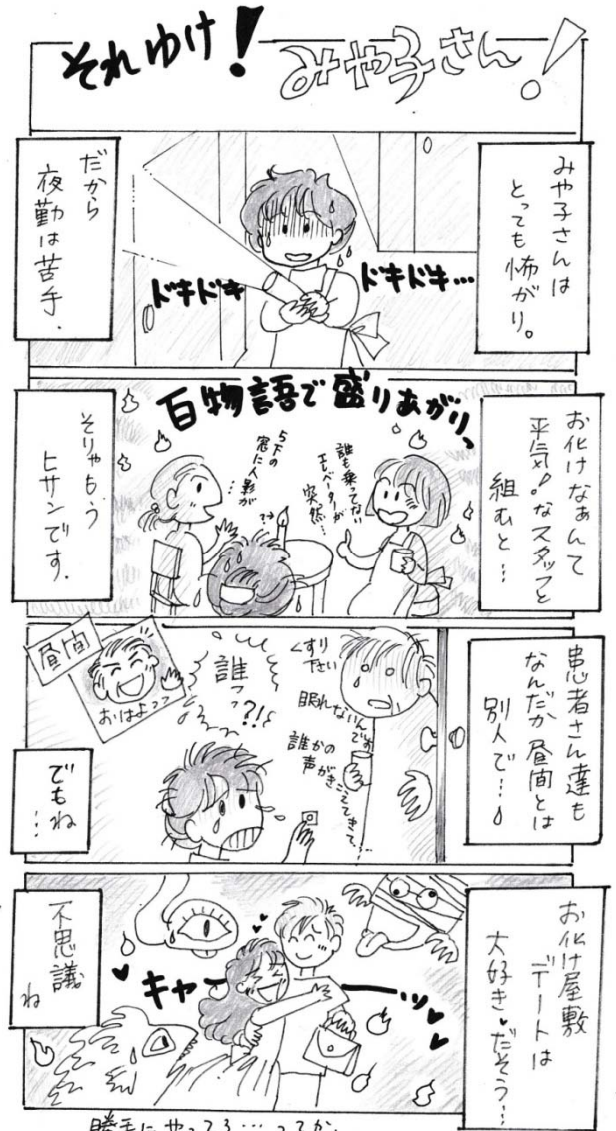 それゆけ！みや子さん！
みや子さんは
とっても怖がり。
ドキドキ…
ドキドキ
だから
夜勤は苦手.
お化けなぁんて
平気！なスタッフと
組むと…
百物語で盛りあがりっ
誰も乗ってない
エレベーターが
突然…
5下の
窓に人影が
…
?→
そりゃもう
ヒサンです.
患者さん達も
なんだか昼間とは
別人で…
くすり
下さい
眠れないんです
誰かの
声がきこえてきて、…
誰っっ
?!!
昼間
おはよっっ
でもね
…
お化け屋敷
デートは
大好き♥だそう…
キャーーッ♥♥
不思議
ね
勝手にやってろ…ってか